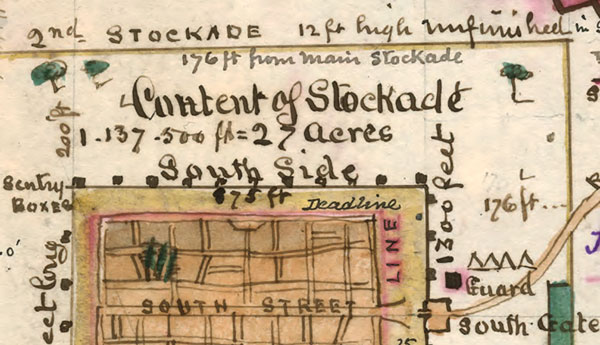 2nd STOCKADE 12 ft high Unfinished in
176 ft from main Stockade
Content of Stockade
1-137-500 ft = 27 acres
200 ft
South Side
Sentry
Boxes
875 ft
Deadline
1300 feet
176 ft
LINE
SOUTH STREET
Guard
South Gate
eet long
25